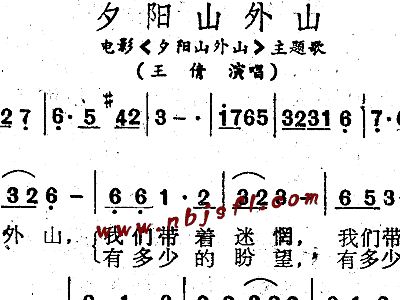 夕阳山外山
电影《夕阳山外山》主题歌
(王倩 演唱)
27 | 6· 5 #42 | 3 - · | i765 | 3231 6 | 7·6
326 - | 6 6 1 · 2 | 323 - | 6 5 3
外 山, 我们带 着 迷 惘, 我们带
有多少 的 盼 望, 有多少
www.nbjsfl.com